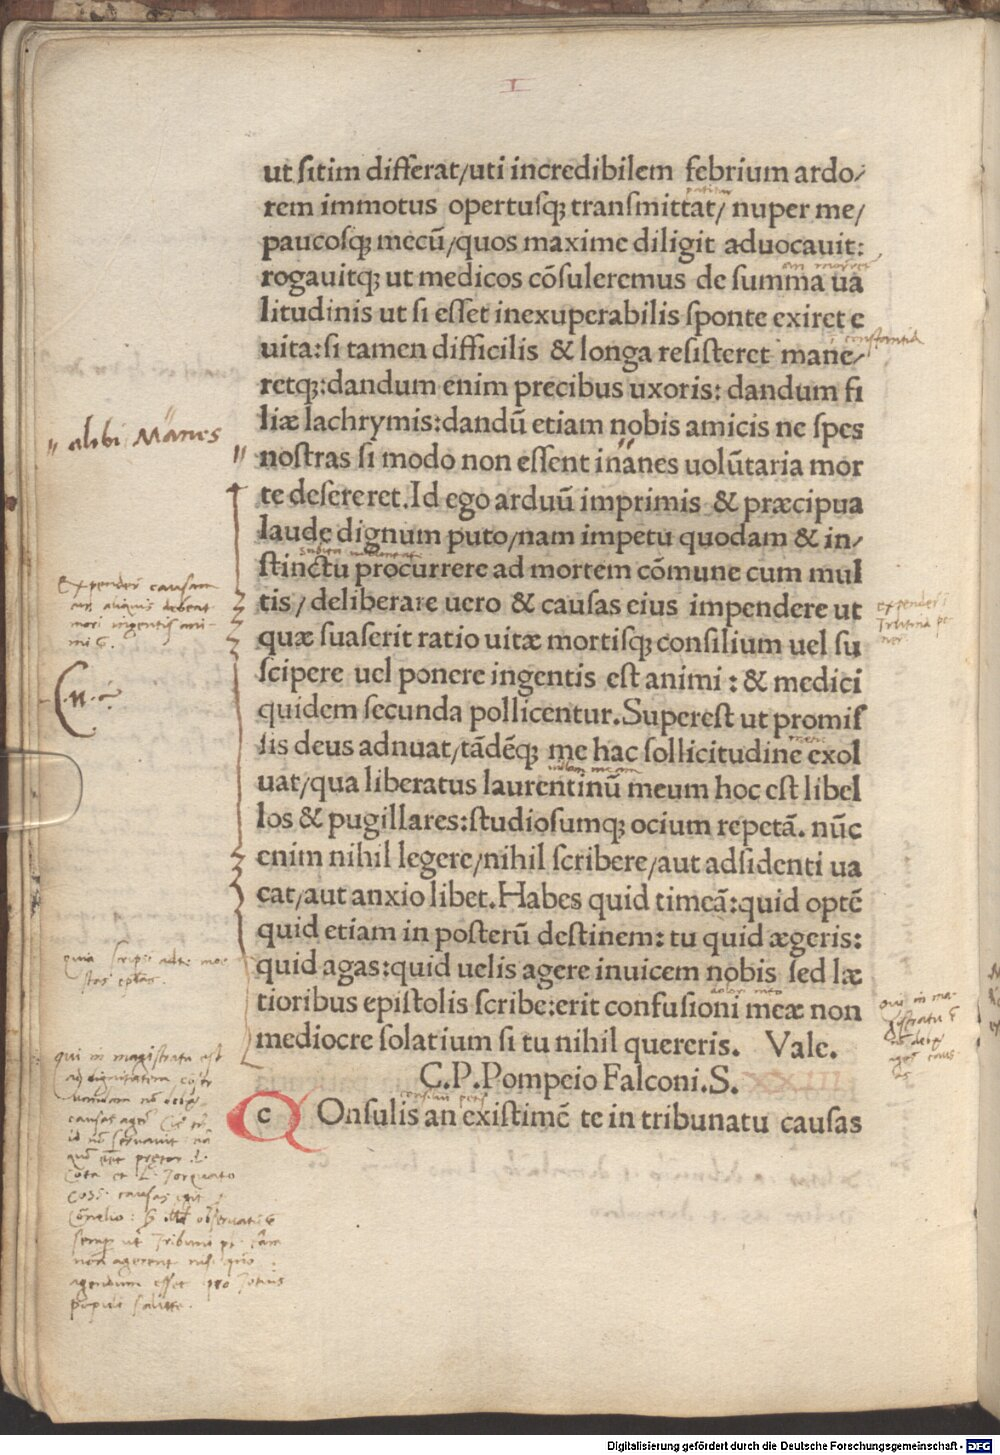 I
ut sitim differat/uti incredibilem febrium ardo/
rem immotus opertusq; transmittat/ nuper me/
paucosq; mecū/quos maxime diligit aduocauit:
rogauitq; ut medicos cōsuleremus de summa ua
litudinis ut si esset inexuperabilis sponte exiret e
uita:si tamen difficilis & longa resisteret mane/
retq;:dandum enim precibus uxoris: dandum fi
liæ lachrymis:dandū etiam nobis amicis ne spes
nostras si modo non essent inanes uolūtaria mor
te desereret.Id ego arduū imprimis & præcipua
laude dignum puto/nam impetu quodam & in/
stinctu procurrere ad mortem cōmune cum mul
tis/deliberare uero & causas eius impendere ut
quæ suaserit ratio uitæ mortisq; consilium uel su
scipere uel ponere ingentis est animi:& medici
quidem secunda pollicentur.Superest ut promis
sis deus adnuat/tādēq; me hac sollicitudine exol
uat/qua liberatus laurentinū meum hoc est libel
los & pugillares:studiosumq; ocium repetā. nūc
enim nihil legere/nihil scribere/aut adsidenti ua
cat/aut anxio libet.Habes quid timeā:quid optē
quid etiam in posterū destinem: tu quid ægeris:
quid agas:quid uelis agere inuicem nobis sed læ
tioribus epistolis scribe:erit confusioni meæ non
mediocre solatium si tu nihil quereris. Vale.
C.P.Pompeio Falconi.S.
cOnsulis an existimē te in tribunatu causas
patitur
constantia
alibi Manes
Expendere causam
cur aliquis debeat
mori ingentis ani-
mi
expendere
quia scripsi
qui in magistratu est
causas
Torquato
causas egit
semp ut Tribuni pl.
non agerent nisi
agendum esset pro totius
populi salute.
Digitalisierung gefördert durch die Deutsche Forschungsgemeinschaft - DFG